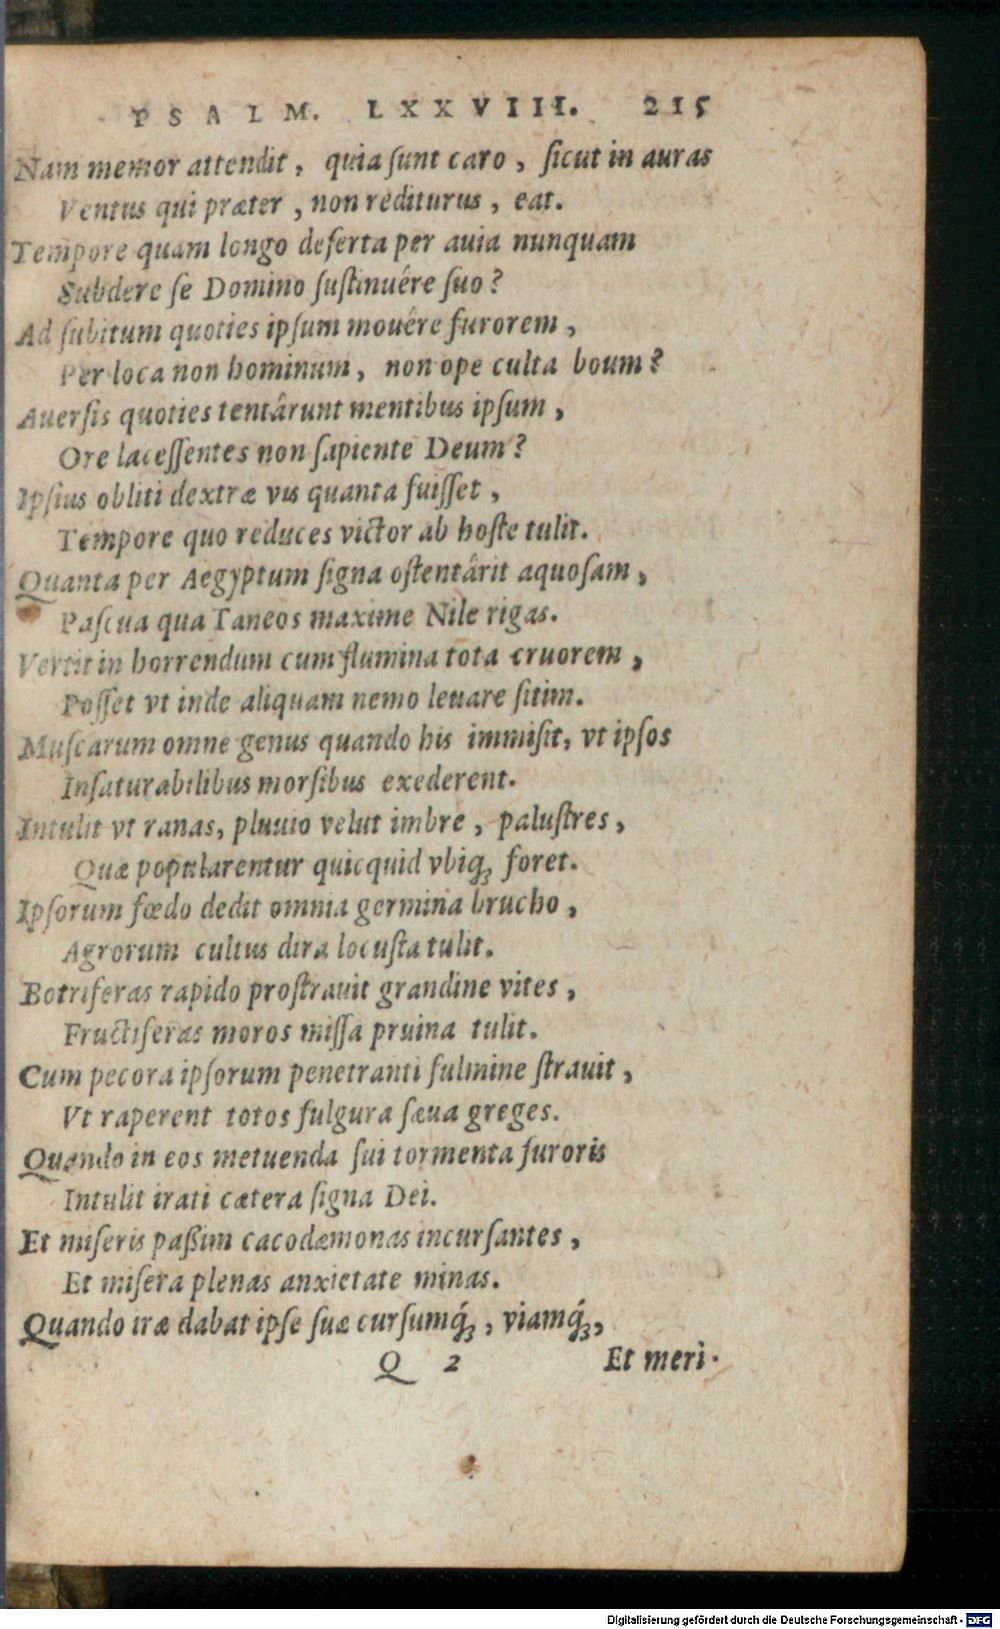 PSALM. LXXVIII. 215
Nam memor attendit, quia ſunt caro, ſicut in auras
Ventus qui præter, non rediturus, eat.
Tempore quam longo deſerta per auia nunquam
Subdere ſe Domino ſuſtinuêre ſuo?
Ad ſubitum quoties ipſum mouêre furorem,
Per loca non hominum, non ope culta boum?
Auerſis quoties tentârunt mentibus ipſum,
Ore laceſſentes non ſapiente Deum?
Ipſius obliti dextræ vis quanta fuiſſet,
Tempore quo reduces victor ab hoſte tulit.
Quanta per Aegyptum ſigna oſtentârit aquoſam,
Paſcua qua Taneos maxime Nile rigas.
Vertit in horrendum cum flumina tota cruorem,
Poſſet vt inde aliquam nemo leuare ſitim.
Muſcarum omne genus quando his immiſit, vt ipſos
Inſaturabilibus morſibus exederent.
Intulit vt ranas, pluuio velut imbre, paluſtres,
Quæ popularentur quicquid vbiqꝫ foret.
Ipſorum fœdo dedit omnia germina brucho,
Agrorum cultus dira locuſta tulit.
Botriferas rapido proſtrauit grandine vites,
Fructiferas moros miſſa pruina tulit.
Cum pecora ipſorum penetranti fulmine ſtrauit,
Vt raperent totos fulgura ſæua greges.
Quando in eos metuenda ſui tormenta furoris
Intulit irati cætera ſigna Dei.
Et miſeris paßim cacodæmonas incurſantes,
Et miſera plenas anxietate minas.
Quando iræ dabat ipſe ſuæ curſumq́ꝫ, viamq́ꝫ,
Q 2 Et meri-
Digitalisierung gefördert durch die Deutsche Forschungsgemeinschaft - DFG